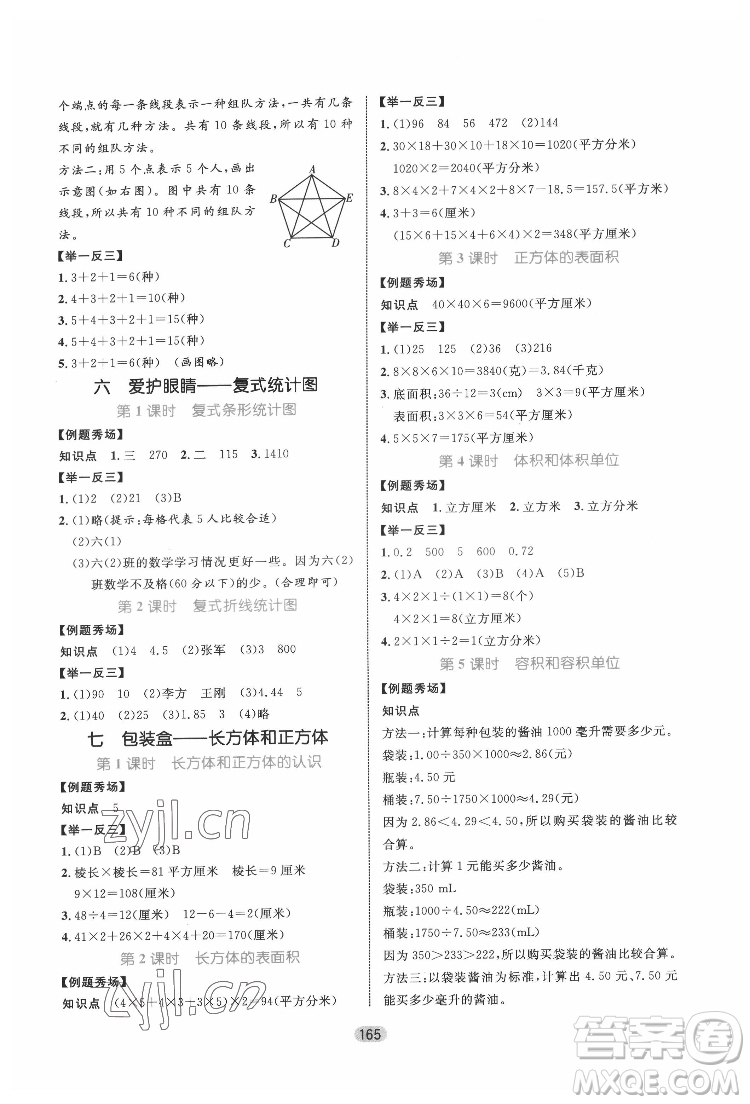 个端点的每一条线段表示一种组队方法,一共有几条
线段,就有几种方法。共有 10 条线段,所以共有 10 种
不同的组队方法。
方法二:用 5 个点表示 5 个人,画出
示意图(如右图)。图中共有 10 条
线段,所以共有 10 种不同的组队方
法。
A
B
E
C
D
【举一反三】
1. 3+2+1=6(种)
2. 4+3+2+1=10(种)
3. 5+4+3+2+1=15(种)
4. 5+4+3+2+1=15(种)
5. 3+2+1=6(种) (画图略)
六 爱护眼睛——复式统计图
第 1 课时 复式条形统计图
【例题秀场】
知识点 1. 三 270 2. 二 115 3. 1410
【举一反三】
1. (1)22 (2)A (3)B
2. (1)略(提示:每格代表 5 人比较合适)
(2)六(1)
(3)六(2)班的数学学习情况更好一些。因为六(2)
班数学不及格(60 分以下)的少。(合理即可)
第 2 课时 复式折线统计图
【例题秀场】
知识点 (1)4 4.5 (2)张军 (3)3.5
【举一反三】
1. (1)90 10 (2)李方 王刚 (3)4.44 5
2. (1)40 (2)5 (3)1.85 3 (4)略
七 包装盒——长方体和正方体
第 1 课时 长方体和正方体的认识
【例题秀场】
知识点 5
【举一反三】
1. (1)B (2)B (3)C
2. 棱长×棱长=81 平方厘米 棱长=9 厘米
9×12=108(厘米)
3. 48÷4=12(厘米) 12-6-4=2(厘米)
4. 41×2+32×2+18×4=218(厘米)
第 2 课时 长方体的表面积
【例题秀场】
知识点 (4×5+4×3+3×5)×2=94(平方厘米)
【举一反三】
1. (1)96 84 56 472 (2)144
2. 30×18+30×10+18×10=1020(平方分米)
1020×2=2040(平方分米)
3. 8×4×2+7×4×2+7×8-18.5=157.5(平方米)
4. 3+3=6(厘米)
(15×6+15×4+6×4)×2=348(平方分米)
第 3 课时 正方体的表面积
【例题秀场】
知识点 40×40×6=9600(平方厘米)
【举一反三】
1. (1)25 125 (2)36 (3)216
2. 8×8×6×10=3840(克)=3.84(千克)
3. 底面积:36÷12=3(cm) 3×3=9(平方厘米)
表面积:3×3×6=54(平方厘米)
4. 5×5×7=175(平方分米)
第 4 课时 体积和体积单位
【例题秀场】
知识点 1. 立方厘米 2. 立方分米 3. 立方米
【举一反三】
1. 0.2 500 5 600 0.72
2. (1)A (2)A (3)B
3. 4×2×1÷(1×1×1)=8(个)
4×2×1=8(立方厘米)
4. 2×1×1÷2=1(立方分米)
第 5 课时 容积和容积单位
【例题秀场】
知识点
方法一:计算每种包装的酱油 1000 毫升需要多少元。
袋装:1.00÷350×1000≈2.86(元)
瓶装:4.50 元
桶装:7.50÷1750×1000≈4.29(元)
因为 2.86<4.29<4.50,所以购买袋装的酱油比较
合算。
方法二:计算 1 元能买多少酱油。
袋装:350 mL
瓶装:1000÷4.50≈222(mL)
桶装:1750÷7.50≈233(mL)
因为 350>233>222,所以购买袋装的酱油比较合算。
方法三:以袋装酱油为标准,计算出 4.50 元、7.50 元
能买多少毫升的酱油。
165
zyjl.cn
zyjl.cn
答案圈
MXQE.COM